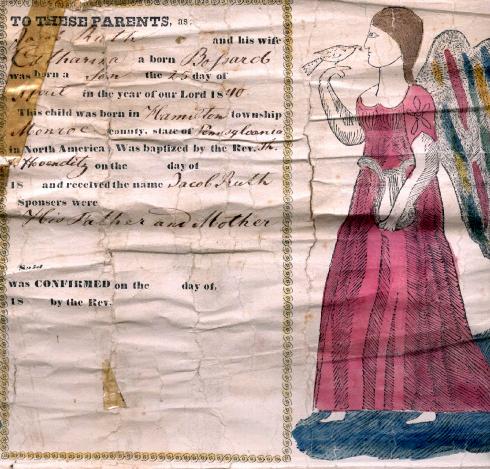 TO THESE PARENTS, as:
Ruth and his wife
Catharina a born Bossard
was born a Son the 25 day of
in the year of our Lord 1840.
This child was born in Hamilton township
Monroe county, state of Pennsylvania
in North America; Was baptized by the Rev.
on the day of
18 and received the name Jacob Ruth
Sponsers were
His Father and Mother
was CONFIRMED on the day of,
18 by the Rev.